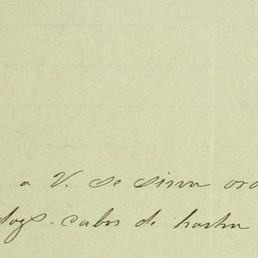 a V. se sirva or
dos cabos de hacha